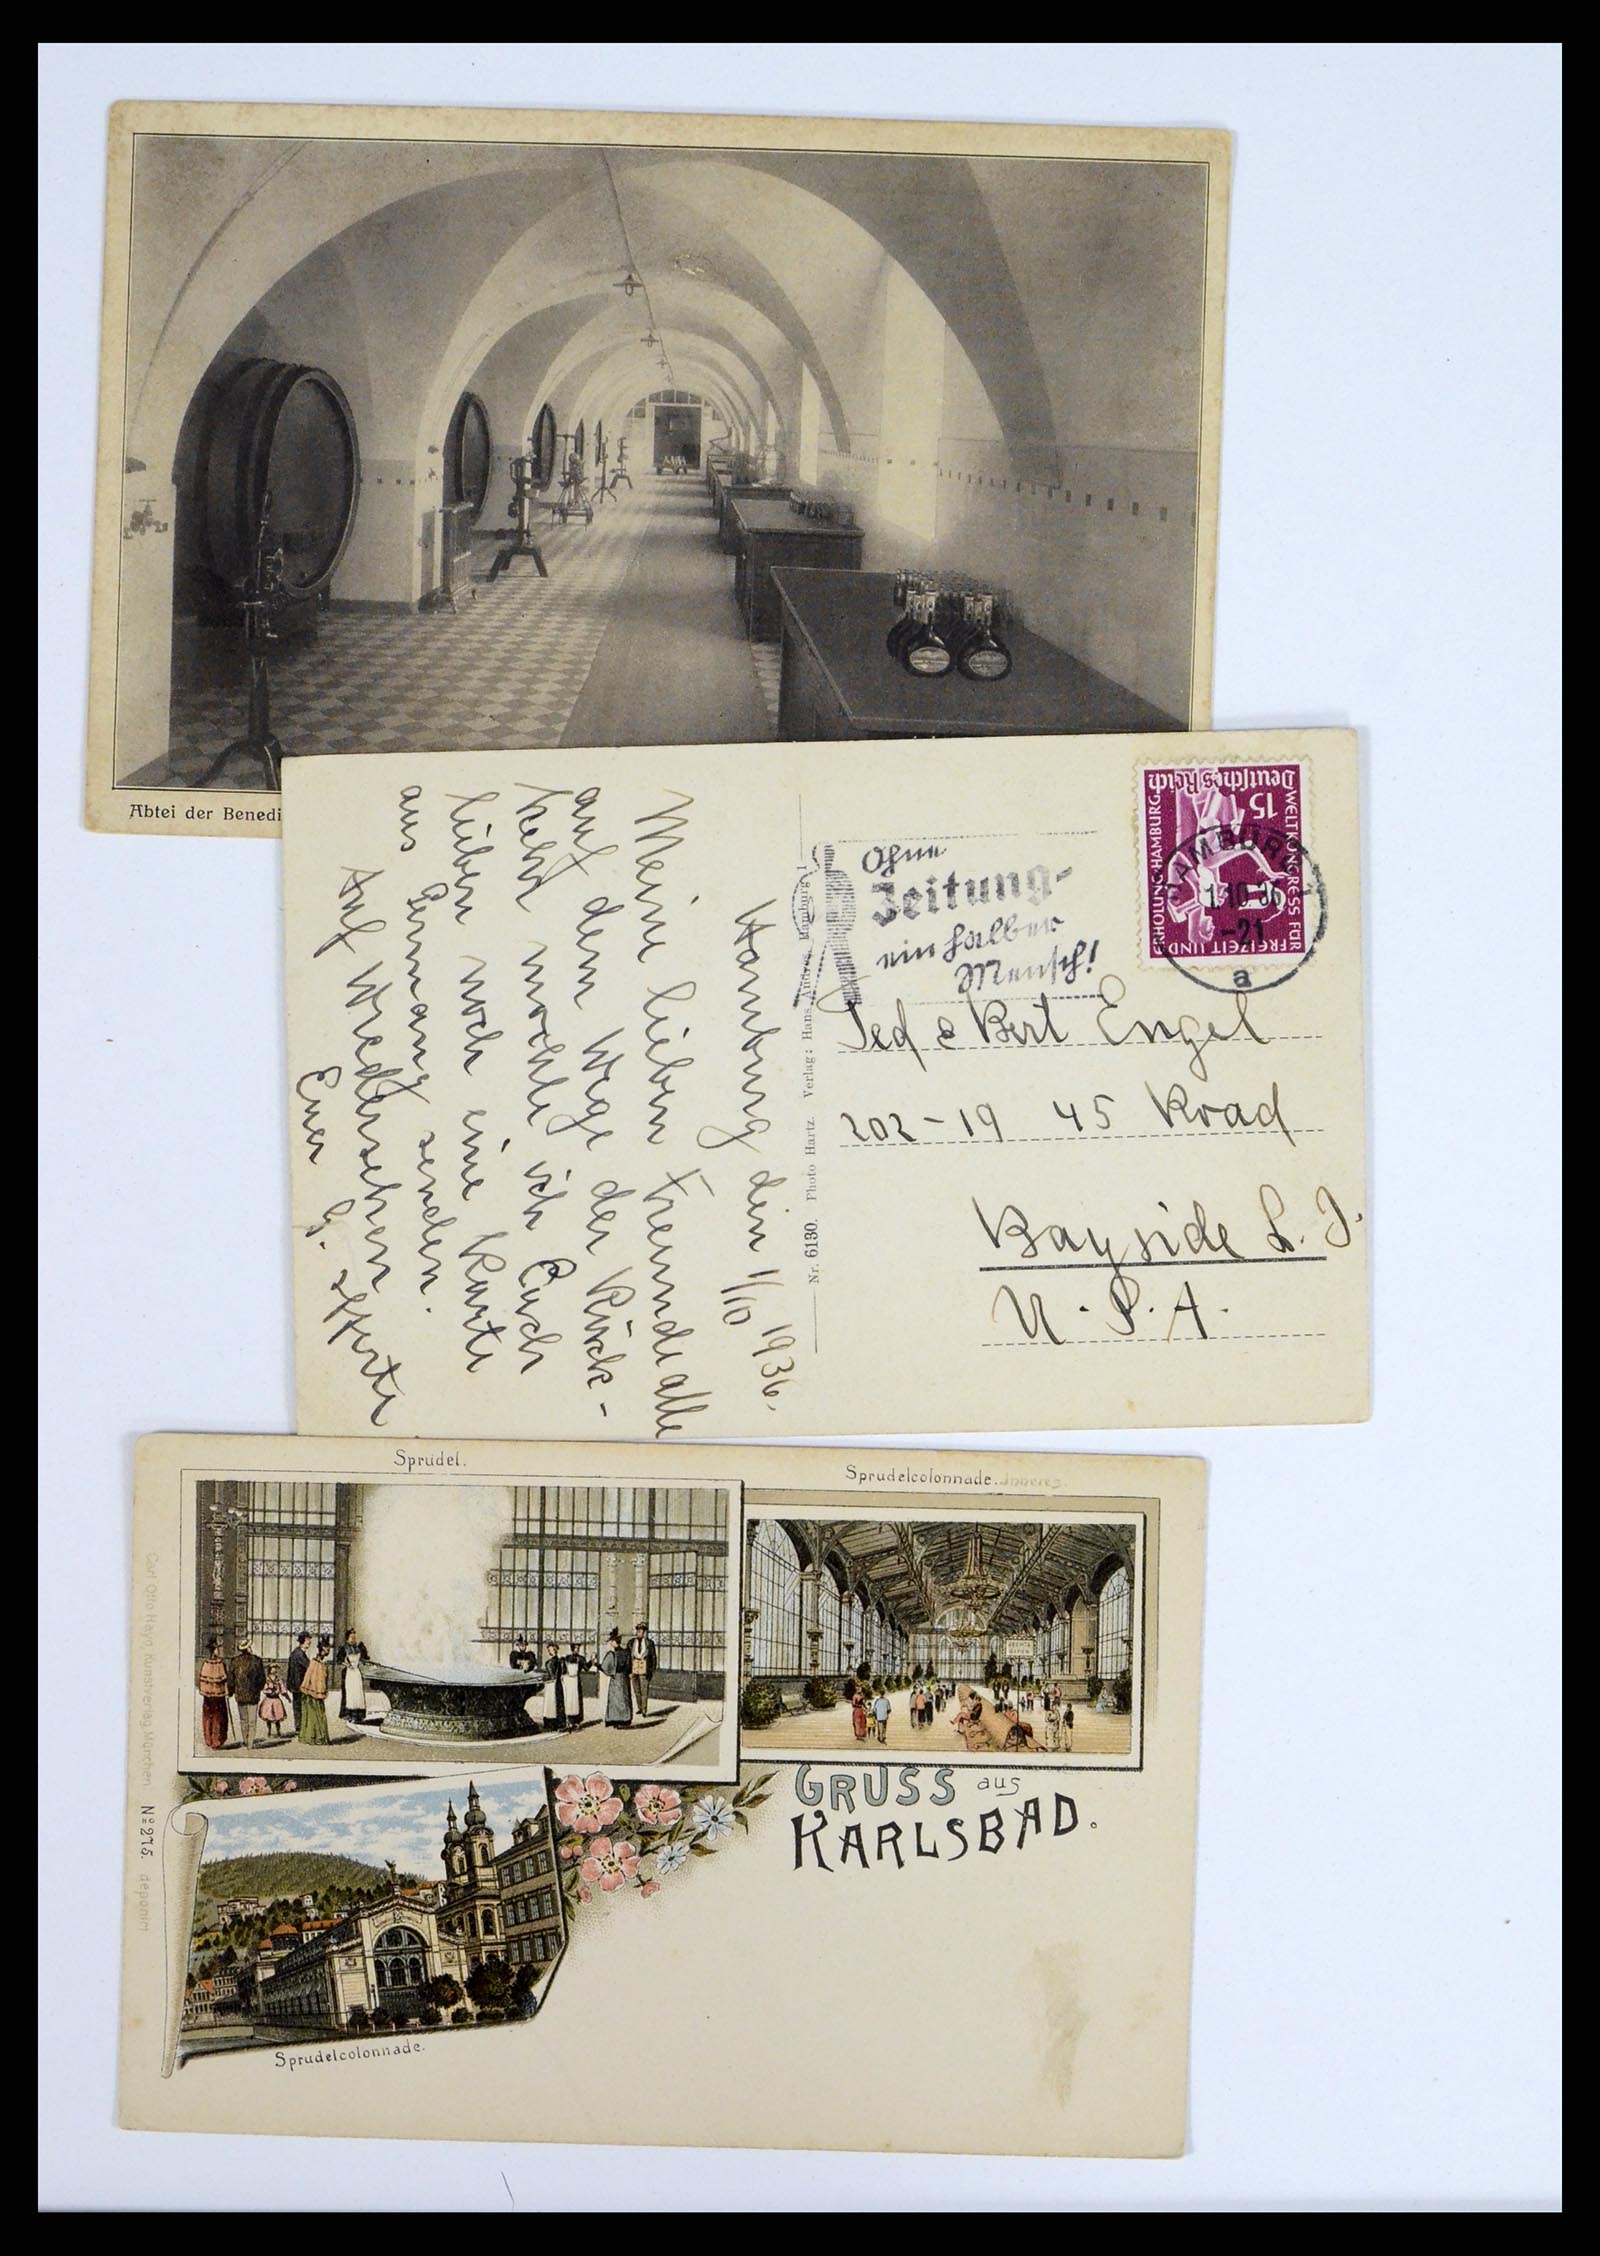 Abtei der Benedi
Hamburg den 1/10 1936.
Meine lieben Freunde alle
auf dem Wege der Rück-
kehr möchte ich Euch
lieben noch eine Karte
aus Germany senden.
Auf Wiedersehen
Euer G.
Nr. 6130. Photo Hartz. Verlag: Hans Andres, Hamburg 1
Ohne
Zeitung-
ein halber
Mensch!
Deutsches Reich
15
WELTKONGRESS FÜR
FREIZEIT UND
ERHOLUNG HAMBURG
HAMBURG 1
1.10.36
-21
a
Ted & Bert Engel
202-19 45 Road
Bayside L. I.
U. S. A.
Sprudel.
Sprudelcolonnade. Inneres.
Carl Otto Hayd, Kunstverlag, München. No 275. deponirt
GRUSS aus
KARLSBAD.
Sprudelcolonnade.